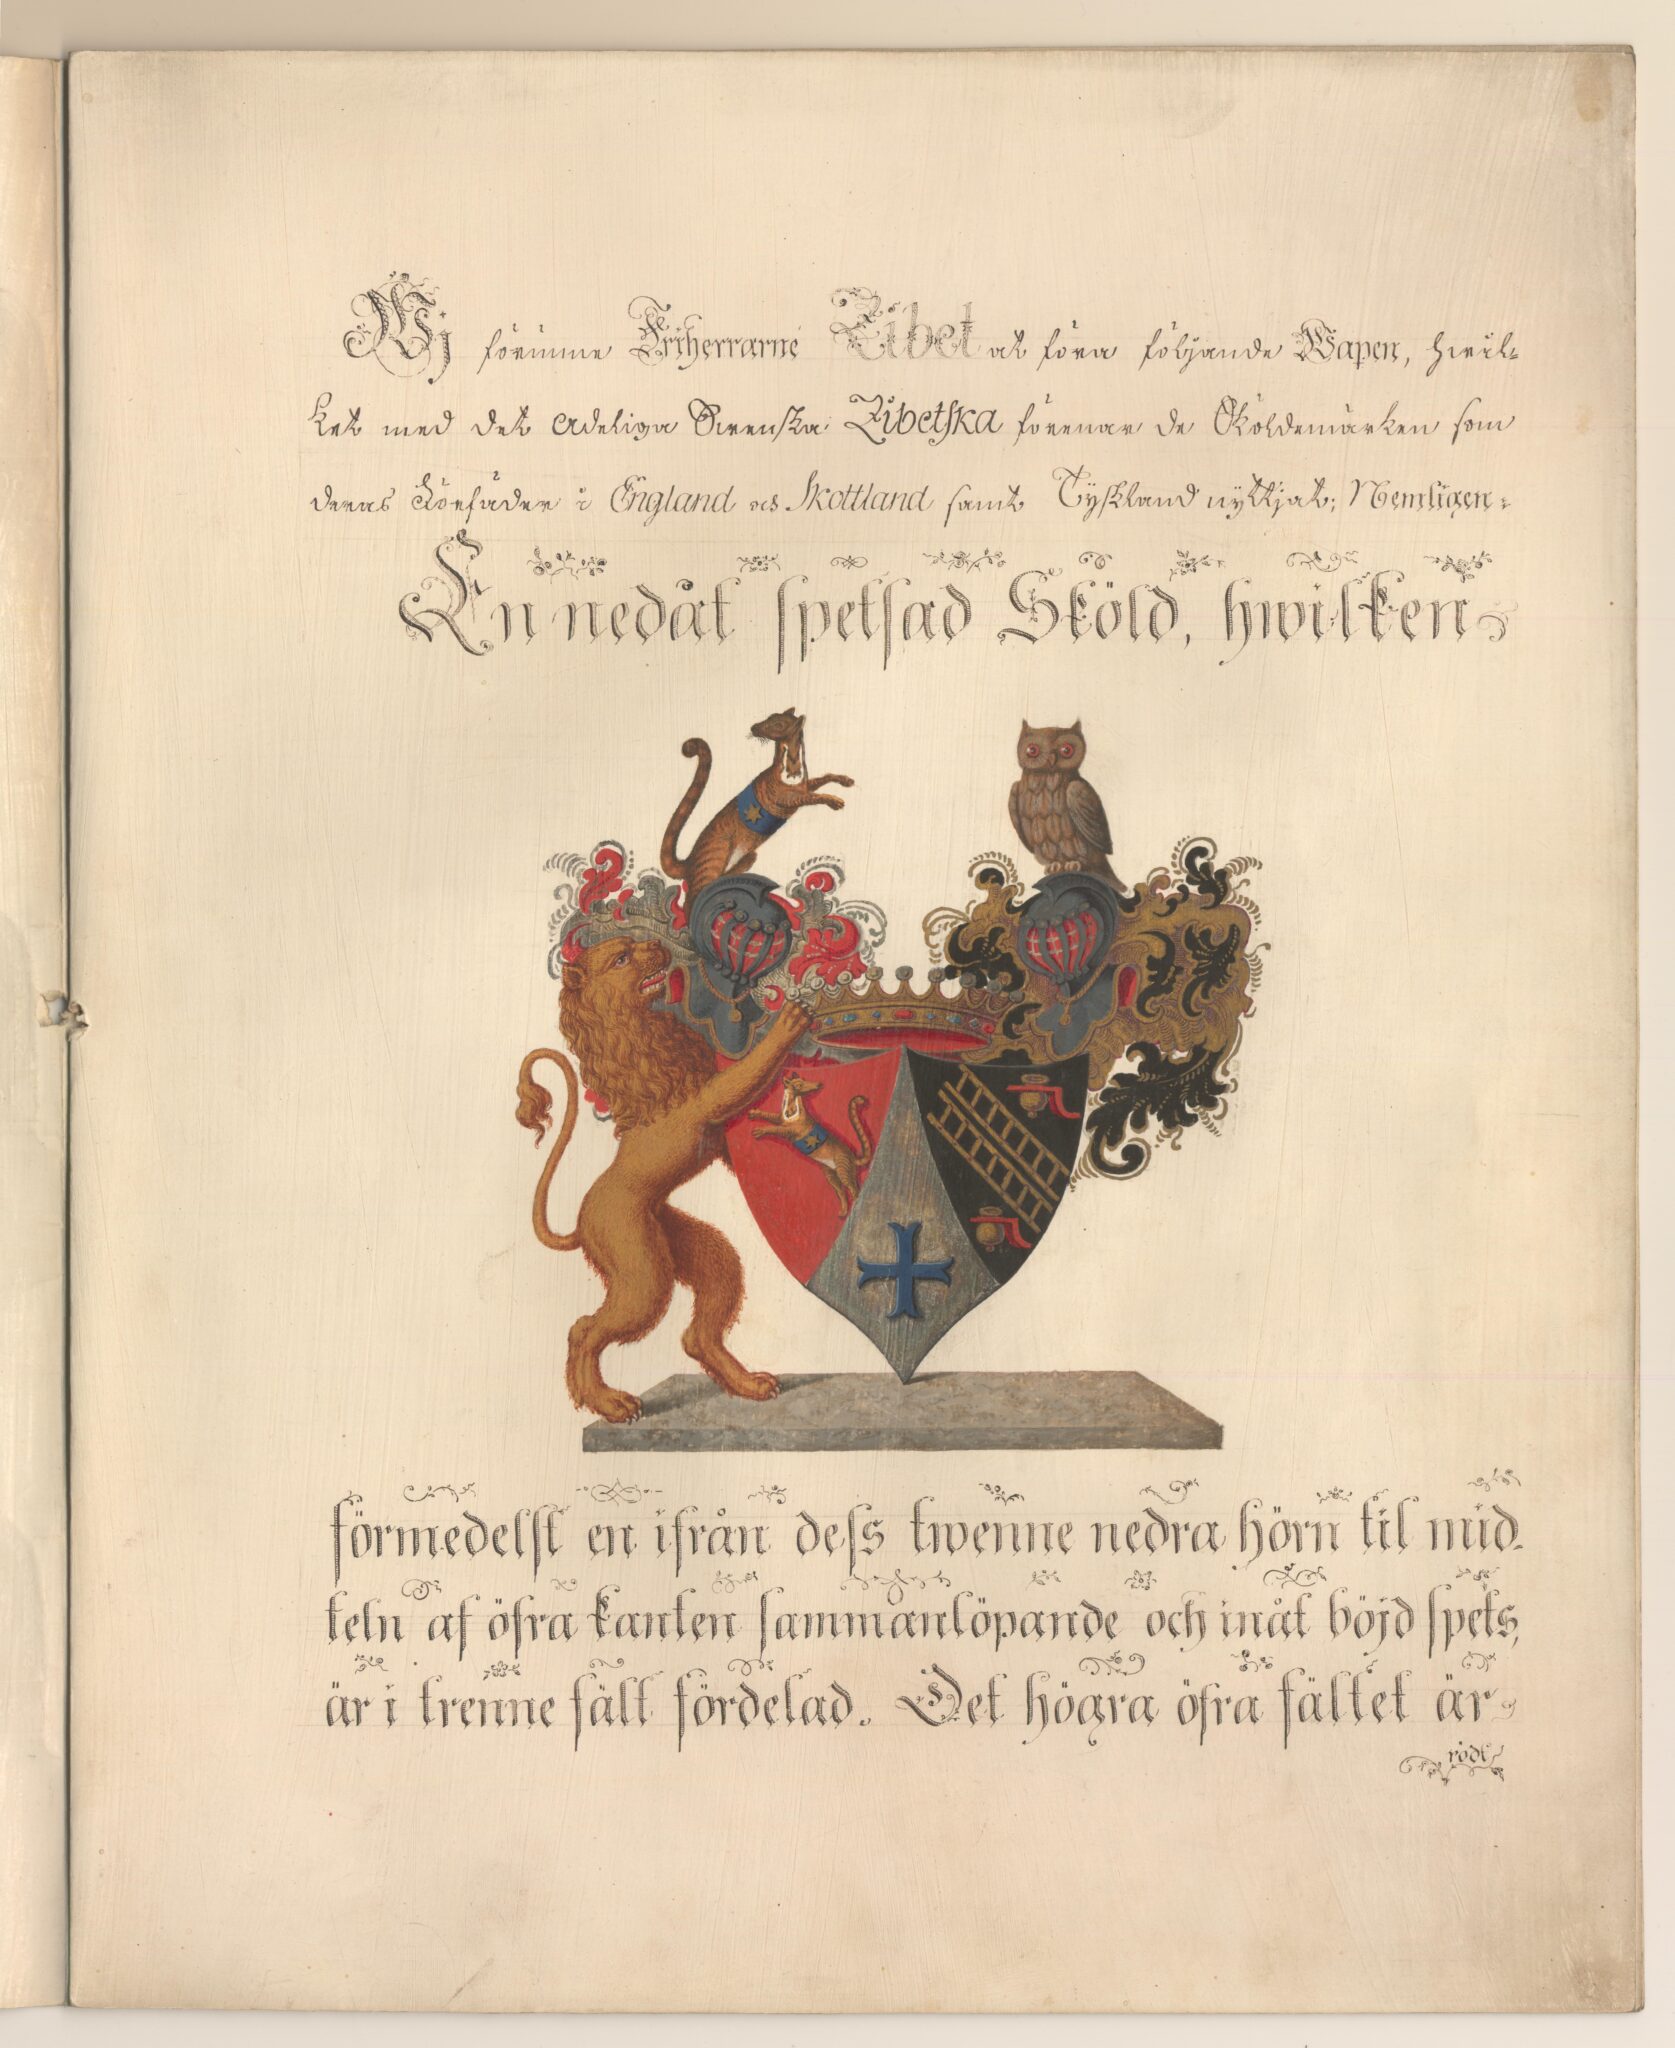 Wj förunne Friherrarne Zibet at föra följande Wapen, hwil-
ket med det Adeliga Swenska Zibetska förenar de Sköldemärken som
deras Förfäder i England och Skottland samt Tyskland nyttjat; Nemligen:
En nedåt spetsad Sköld, hwilken
förmedelst en ifrån dess twenne nedra hörn til mid-
teln af öfra kanten sammanlöpande och inåt böjd spets,
är i trenne fält fördelad. Det högra öfra fältet är
rödt